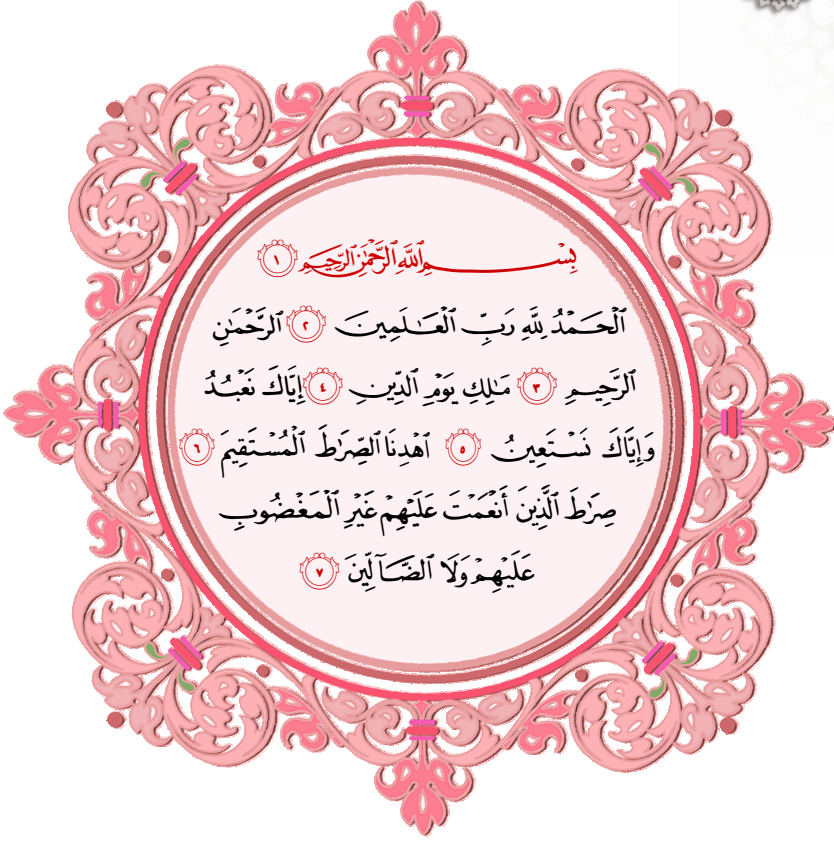 بِسْمِ ٱللَّهِ ٱلرَّحْمَٰنِ ٱلرَّحِيمِ ١
ٱلْحَمْدُ لِلَّهِ رَبِّ ٱلْعَـٰلَمِينَ ٢ ٱلرَّحْمَٰنِ
ٱلرَّحِيمِ ٣ مَـٰلِكِ يَوْمِ ٱلدِّينِ ٤ إِيَّاكَ نَعْبُدُ
وَإِيَّاكَ نَسْتَعِينُ ٥ ٱهْدِنَا ٱلصِّرَٰطَ ٱلْمُسْتَقِيمَ ٦
صِرَٰطَ ٱلَّذِينَ أَنْعَمْتَ عَلَيْهِمْ غَيْرِ ٱلْمَغْضُوبِ
عَلَيْهِمْ وَلَا ٱلضَّآلِّينَ ٧